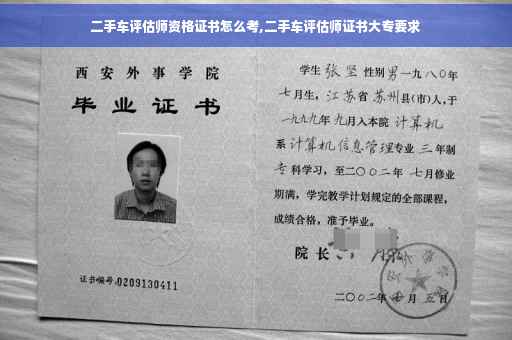 二手车评估师资格证书怎么考,二手车评估师证书大专要求
西安外事学院
毕业证书
证书编号:0209130411
学生 张坚 性别男一九八〇年
七月生,江苏省 苏州县(市)人,于
一九九九年 九月入本院 计算机
系 计算机信息管理专业 三 年制
专科学习,至二〇〇二年 七月修业
期满,学完教学计划规定的全部课程,
成绩合格,准予毕业。
院长
二〇〇二年 月 五日